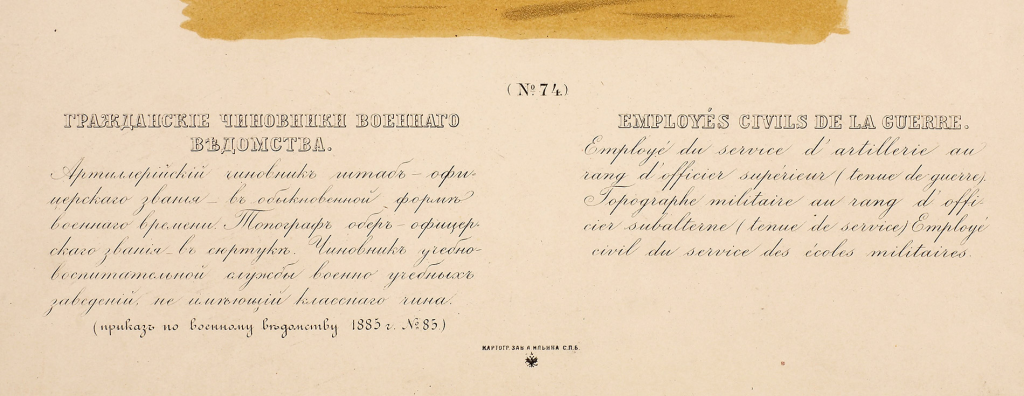 (№ 74)
ГРАЖДАНСКІЕ ЧИНОВНИКИ ВОЕННАГО
ВѢДОМСТВА.
Артиллерійскій чиновникъ штабъ-офи-
церскаго званія - въ обыкновенной формѣ
военнаго времени. Топографъ оберъ-офицер-
скаго званія - въ сюртукѣ. Чиновникъ учебно-
воспитательной службы военно учебныхъ
заведеній, не имѣющій класснаго чина.
(приказъ по военному вѣдомству 1885 г. № 85.)
EMPLOYÉS CIVILS DE LA GUERRE.
Employé du service d'artillerie au
rang d'officier supérieur (tenue de guerre).
Topographe militaire au rang d'offi-
cier subalterne (tenue de service) Employé
civil du service des écoles militaires.
КАРТОГР. ЗАВ. А. ИЛЬИНА С.П.Б.